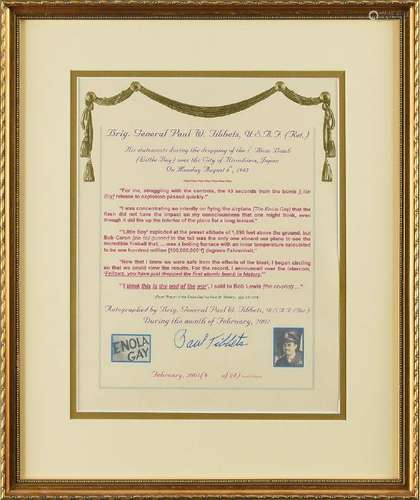 Brig. General Paul W. Tibbets, U.S.A.F (Ret.)
His statements during the dropping of the 1st Atom Bomb
(Little Boy) over the City of Hiroshima, Japan
On Monday August 6th, 1945
"For me, struggling with the controls, the 43 seconds from the bomb [Little
Boy] release to explosion passed quickly."
"I was concentrating so intently on flying the airplane [The Enola Gay] that the
flash did not have the impact on my consciousness that one might think, even
though it did light up the interior of the plane for a long instant."
"'Little Boy' exploded at the preset altitude of 1,890 feet above the ground, but
Bob Caron [the tail gunner] in the tail was the only one aboard our plane to see the
incredible fireball that, ... was a boiling furnace with an inner temperature calculated
to be one hundred million [100,000,000°] degrees Fahrenheit."
"Now that I knew we were safe from the effects of the blast, I began circling
so that we could view the results. For the record, I announced over the intercom,
'Fellows, you have just dropped the first atomic bomb in history.'"
"'I think this is the end of the war', I said to Bob Lewis [the co-pilot]..."
Autographed by Brig. General Paul W. Tibbets, U.S.A.F (Ret.)
During the month of February, 2002
ENOLA
GAY
Paul Tibbets
February, 2002